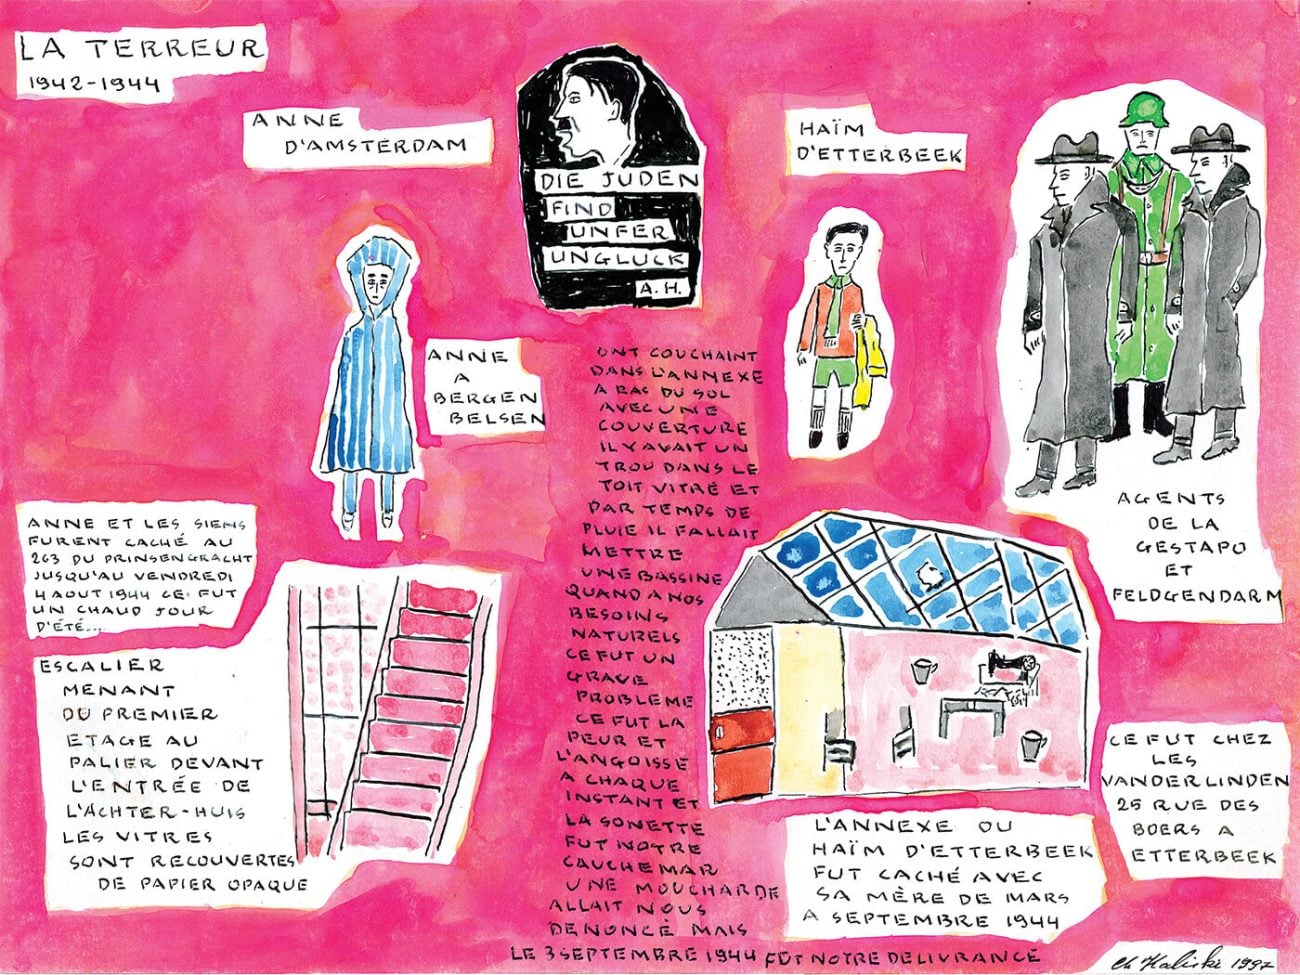 LA TERREUR
1942-1944
ANNE
D'AMSTERDAM
DIE JUDEN
FIND
UNFER
UNGLUCK
A.H.
HAÏM
D'ETTERBEEK
ANNE
A
BERGEN
BELSEN
AGENTS
DE LA
GESTAPO
ET
FELDGENDARM
ANNE ET LES SIENS
FURENT CACHÉ AU
263 DU PRINSENGRACHT
JUSQU'AU VENDREDI
4 AOUT 1944 CE FUT
UN CHAUD JOUR
D'ÉTÉ...
ESCALIER
MENANT
DU PREMIER
ETAGE AU
PALIER DEVANT
L'ENTRÉE DE
L'ACHTER-HUIS
LES VITRES
SONT RECOUVERTES
DE PAPIER OPAQUE
ONT COUCHAINT
DANS L'ANNEXE
A RAS DU SOL
AVEC UNE
COUVERTURE
IL Y AVAIT UN
TROU DANS LE
TOIT VITRÉ ET
PAR TEMPS DE
PLUIE IL FALLAIT
METTRE
UNE BASSINE
QUAND A NOS
BESOINS
NATURELS
CE FUT UN
GRAVE
PROBLEME
CE FUT LA
PEUR ET
L'ANGOISSE
A CHAQUE
INSTANT ET
LA SONETTE
FUT NOTRE
CAUCHEMAR
UNE MOUCHARDE
ALLAIT NOUS
DENONCÉ MAIS
LE 3 SEPTEMBRE 1944 FUT NOTRE DELIVRANCE
L'ANNEXE OU
HAÏM D'ETTERBEEK
FUT CACHÉ AVEC
SA MÈRE DE MARS
A SEPTEMBRE 1944
CE FUT CHEZ
LES
VANDERLINDEN
25 RUE DES
BOERS A
ETTERBEEK
Ch Kaliski 1997